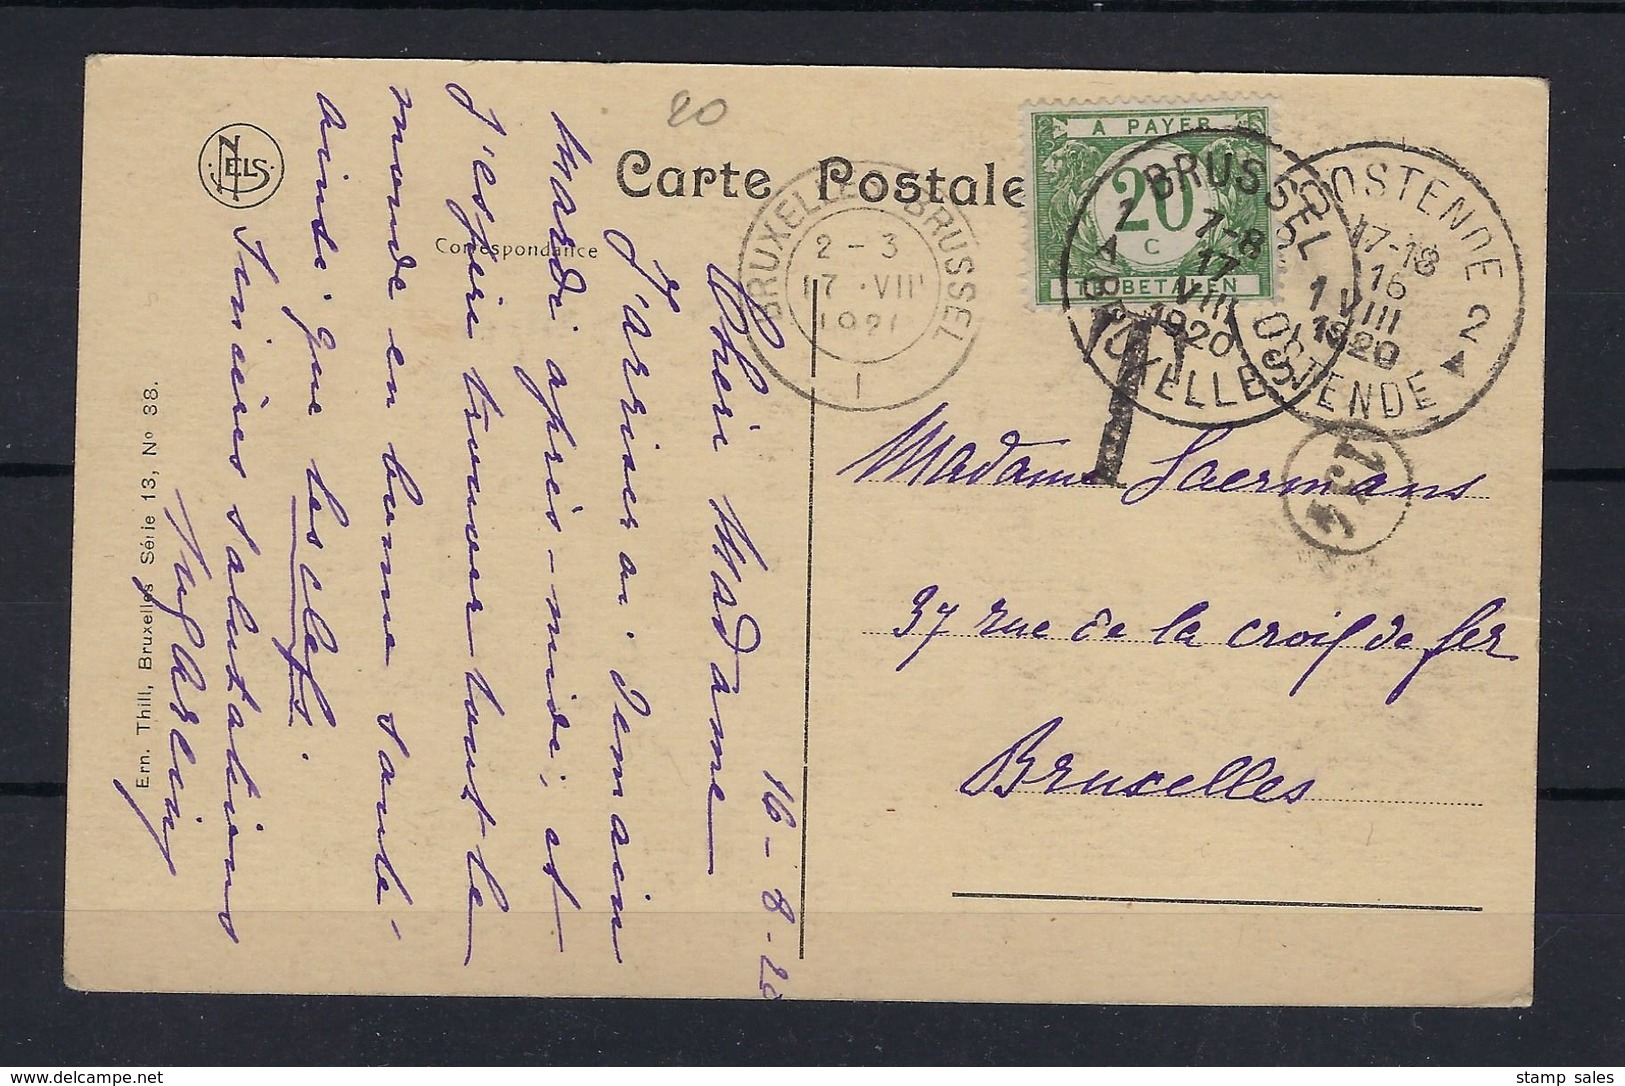 20
Carte Postale
Correspondance
NELS
Ern. Thill, Bruxelles Série 13, No 38.
A PAYER
20
C
TE BETALEN
BRUXELLES BRUSSEL
2-3
17 VIII
192
1
1 BRUSSEL 1
7-8
17
VIII
1920
A BRUXELLES
OOSTENDE 2
17-18
16
VIII
1920
OSTENDE
T
16-8-20
Chère Madame
J'arriverai demain
Mardi après-midi, et
J'espère trouver tout le
monde en bonne santé
ainsi que les clefs.
Sincères salutations
Madame Laermans
37 rue de la croix de fer
Bruxelles
stamp sales